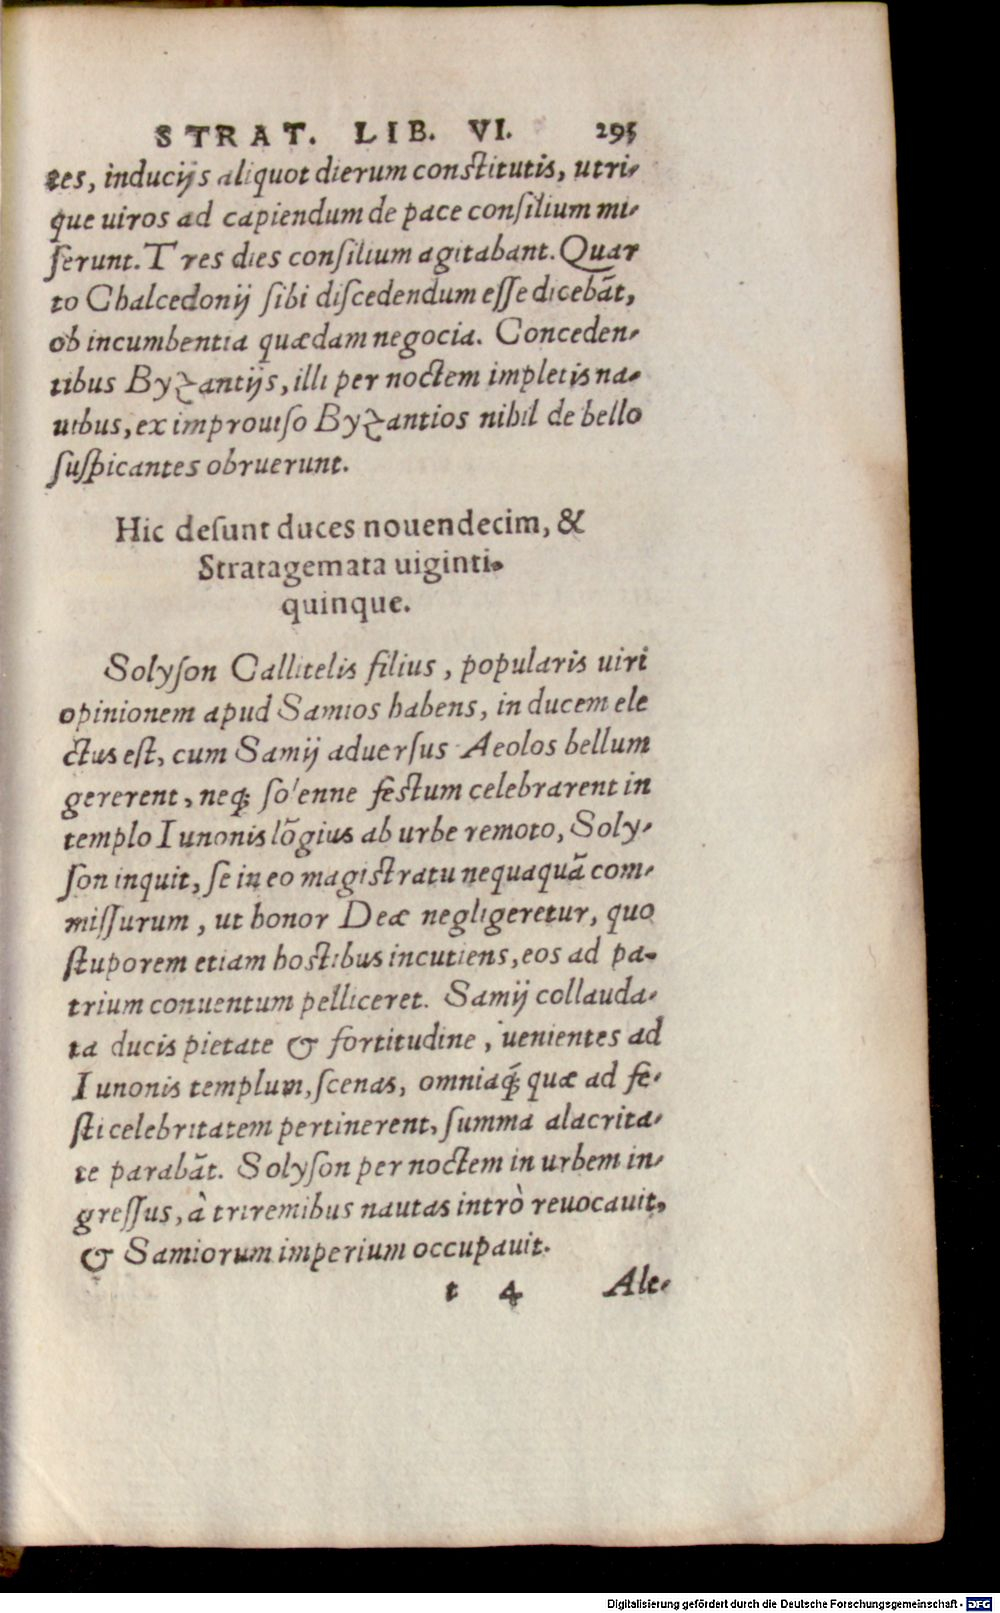 STRAT. LIB. VI. 295
tes, inducijs aliquot dierum constitutis, utri-
que uiros ad capiendum de pace consilium mi-
serunt. Tres dies consilium agitabant. Quar
to Chalcedonij sibi discedendum esse dicebāt,
ob incumbentia quædam negocia. Conceden-
tibus Byzantijs, illi per noctem impletis na-
uibus, ex improuiso Byzantios nihil de bello
suspicantes obruerunt.
Hic desunt duces nouendecim, &
Stratagemata uiginti-
quinque.
Solyson Callitelis filius, popularis uiri
opinionem apud Samios habens, in ducem ele
ctus est, cum Samij aduersus Aeolos bellum
gererent, neq; solenne festum celebrarent in
templo Iunonis lōgius ab urbe remoto, Soly-
son inquit, se in eo magistratu nequaquā com-
missurum, ut honor Deæ negligeretur, quo
stuporem etiam hostibus incutiens, eos ad pa-
trium conuentum pelliceret. Samij collauda-
ta ducis pietate & fortitudine, uenientes ad
Iunonis templum, scenas, omniaq; quæ ad fe-
sti celebritatem pertinerent, summa alacrita-
te parabāt. Solyson per noctem in urbem in-
gressus, à triremibus nautas intrò reuocauit,
& Samiorum imperium occupauit.
t 4 Ale-
Digitalisierung gefördert durch die Deutsche Forschungsgemeinschaft - DFG